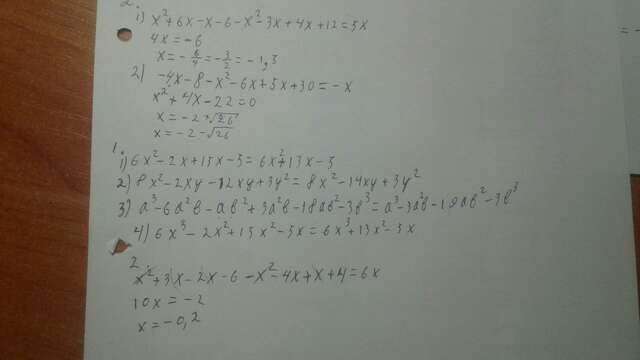 2.
1) x²+6x-x-6-x²-3x+4x+12=5x
4x=-6
x=-6/4=-3/2=-1,5
2) -4x-8-x²-6x+5x+30=-x
x²+4x-22=0
x=-2+√26
x=-2-√26
1.
1) 6x²-2x+15x-5=6x²+13x-5
2) 8x²-2xy-12xy+3y²=8x²-14xy+3y²
3) a³-6a²b-ab²+3a²b-18ab²-3b³=a³-3a²b-19ab²-3b³
4) 6x³-2x²+15x²-5x=6x³+13x²-3x
2
x²+3x-2x-6-x²-4x+x+4=6x
10x=-2
x=-0,2